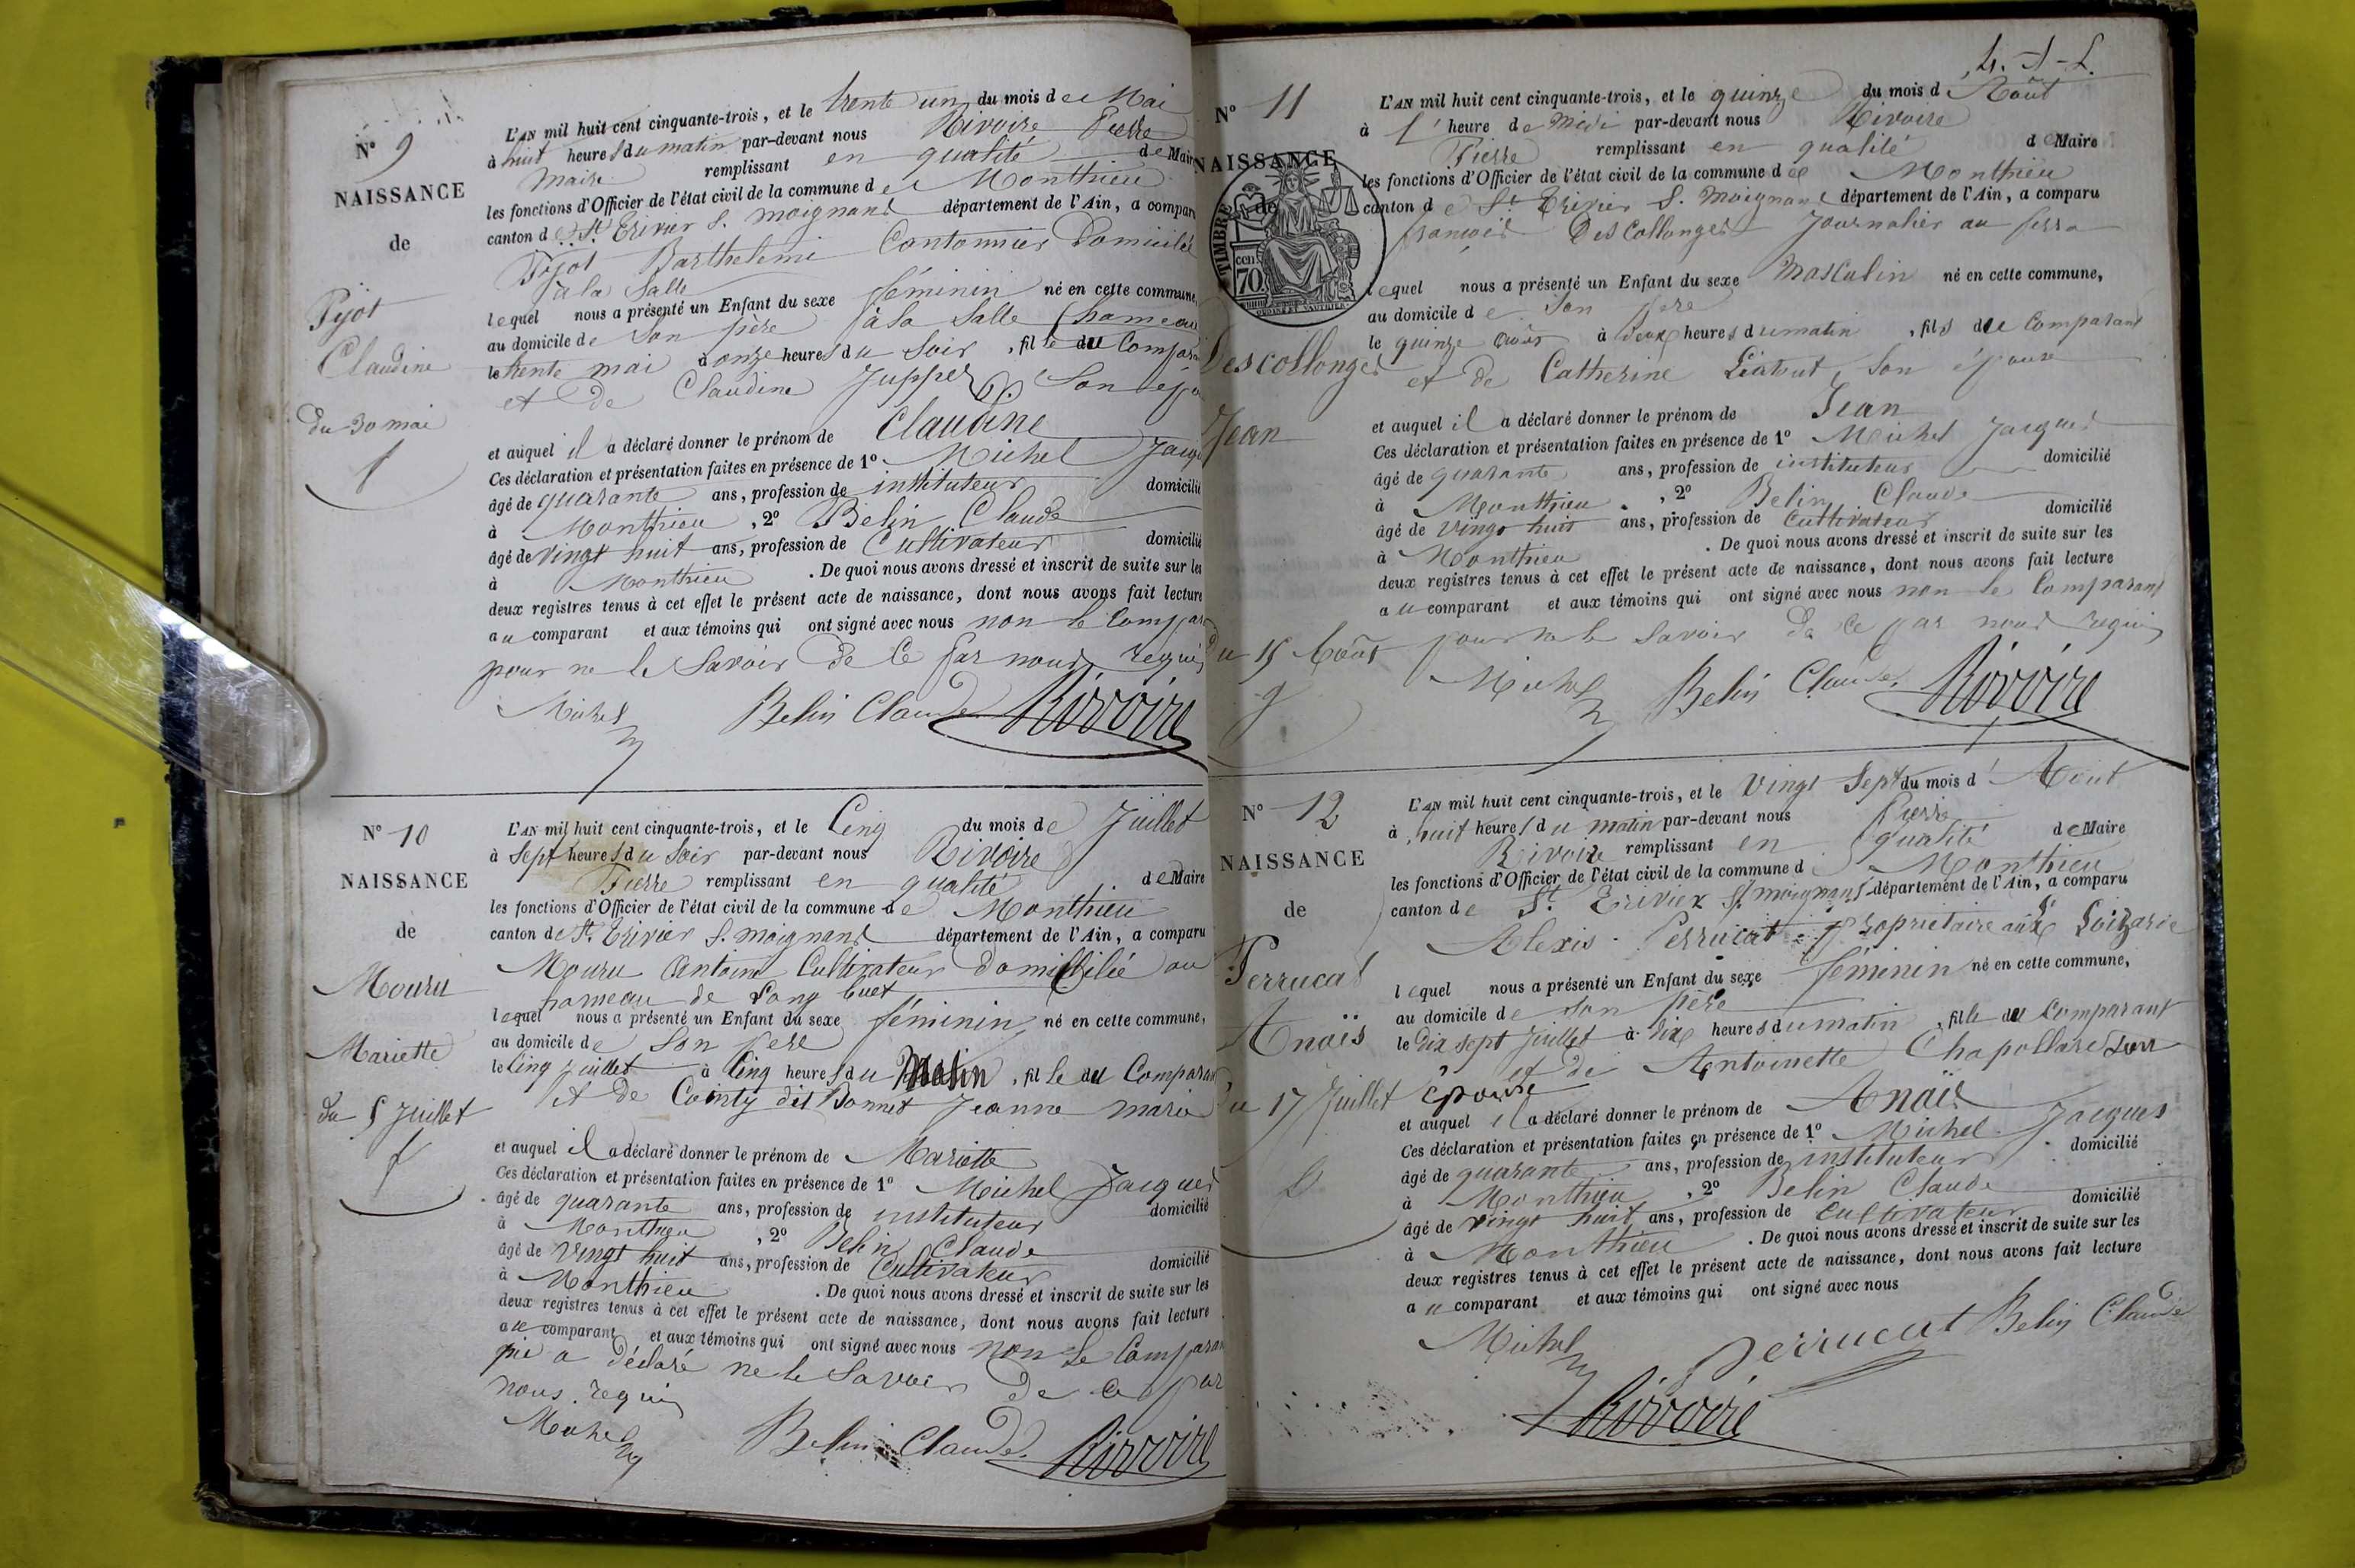 N° 9
NAISSANCE
de
Pijot
Claudine
du 30 mai
L'AN mil huit cent cinquante-trois, et le trente un du mois de Mai
à huit heures du matin par-devant nous Rivoire Pierre
Maire remplissant en qualité de Maire
les fonctions d'Officier de l'état civil de la commune de Monthieu
canton de St Trivier s. moignans département de l'Ain, a comparu
Pijot Barthelemi Cantonnier Domicilié
à la Salle
lequel nous a présenté un Enfant du sexe féminin né en cette commune,
au domicile de son père à la Salle hameau
le trente mai à onze heures du soir, fille du Compar
et de Claudine Juppet son épo
et auquel il a déclaré donner le prénom de Claudine
Ces déclaration et présentation faites en présence de 1° Michel Jacqu
âgé de quarante ans, profession de instituteur domicilié
à Monthieu, 2° Belin Claude
âgé de vingt huit ans, profession de Cultivateur domicilié
à Monthieu. De quoi nous avons dressé et inscrit de suite sur les
deux registres tenus à cet effet le présent acte de naissance, dont nous avons fait lecture
au comparant et aux témoins qui ont signé avec nous non le Compar
pour ne le Savoir de ce par nous requis
Michel Belin Claude Rivoire
N° 10
NAISSANCE
de
Mouru
Mariette
du 5 Juillet
L'AN mil huit cent cinquante-trois, et le Cinq du mois de Juillet
à Sept heures du Soir par-devant nous Rivoire
Pierre remplissant en qualité de Maire
les fonctions d'Officier de l'état civil de la commune de Monthieu
canton de St. Trivier s. moignans département de l'Ain, a comparu
Mouru Antoine Cultivateur domicilié au
hameau de
lequel nous a présenté un Enfant du sexe féminin né en cette commune,
au domicile de son père
le Cinq juillet à Cinq heures du Matin, fille du Comparan
et de Cointy dit Bonnet Jeanne marie
et auquel il a déclaré donner le prénom de Mariette
Ces déclaration et présentation faites en présence de 1° Michel Jacques
âgé de quarante ans, profession de instituteur domicilié
à Monthieu, 2° Belin Claude
âgé de vingt huit ans, profession de Cultivateur domicilié
à Monthieu. De quoi nous avons dressé et inscrit de suite sur les
deux registres tenus à cet effet le présent acte de naissance, dont nous avons fait lecture
au comparant et aux témoins qui ont signé avec nous non le Comparan
qui a déclaré ne le Savoir de ce par
nous requis
Michel Belin Claude Rivoire
N° 11
NAISSANCE
de
TIMBRE
70 cen
Descollonges
Jean
du 15 Août
L'AN mil huit cent cinquante-trois, et le quinze du mois d'Août
à l'heure de Midi par-devant nous Rivoire
Pierre remplissant en qualité de Maire
les fonctions d'Officier de l'état civil de la commune de Monthieu
canton de St Trivier s. moignans département de l'Ain, a comparu
françois Descollonges Journalier au
lequel nous a présenté un Enfant du sexe Masculin né en cette commune,
au domicile de son père
le quinze août à deux heures du matin, fils du Comparant
et de Catherine son épouse
et auquel il a déclaré donner le prénom de Jean
Ces déclaration et présentation faites en présence de 1° Michel Jacques
âgé de quarante ans, profession de instituteur domicilié
à Monthieu, 2° Belin Claude
âgé de vingt huit ans, profession de Cultivateur domicilié
à Monthieu. De quoi nous avons dressé et inscrit de suite sur les
deux registres tenus à cet effet le présent acte de naissance, dont nous avons fait lecture
au comparant et aux témoins qui ont signé avec nous non le Comparant
pour ne le savoir de ce par nous requis
Michel Belin Claude Rivoire
N° 12
NAISSANCE
de
Perrucat
Anaïs
du 17 Juillet
L'AN mil huit cent cinquante-trois, et le Vingt Sept du mois d'Août
à huit heures du matin par-devant nous Pierre
Rivoire remplissant en qualité de Maire
les fonctions d'Officier de l'état civil de la commune de Monthieu
canton de St. Trivier s. moignans département de l'Ain, a comparu
Alexis Perrucat propriétaire
lequel nous a présenté un Enfant du sexe féminin né en cette commune,
au domicile de son père
le dix sept juillet à dix heures du matin, fille du Comparant
et de Antoinette Chapollard son
épouse
et auquel il a déclaré donner le prénom de Anaïs
Ces déclaration et présentation faites en présence de 1° Michel Jacques
âgé de quarante ans, profession de instituteur domicilié
à Monthieu, 2° Belin Claude
âgé de vingt huit ans, profession de Cultivateur domicilié
à Monthieu. De quoi nous avons dressé et inscrit de suite sur les
deux registres tenus à cet effet le présent acte de naissance, dont nous avons fait lecture
au comparant et aux témoins qui ont signé avec nous
Michel Perrucat Belin Claude
Rivoire